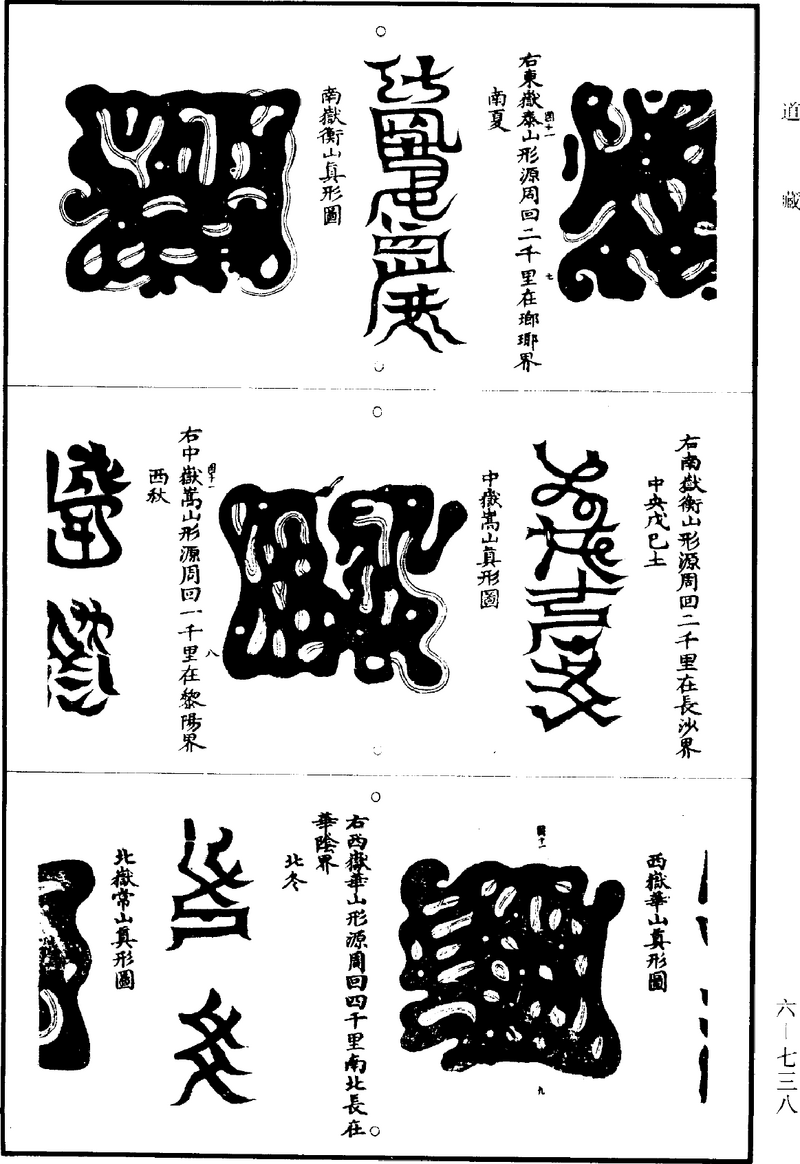 道藏
右東嶽泰山形源周回二千里在瑯琊界
南夏
南嶽衡山真形圖
右南嶽衡山形源周回二千里在長沙界
中央戊巳土
中嶽嵩山真形圖
右中嶽嵩山形源周回一千里在黎陽界
西秋
西嶽華山真形圖
右西嶽華山形源周回四千里南北長在
華陰界
北冬
北嶽常山真形圖
七
八
九
六—七三八